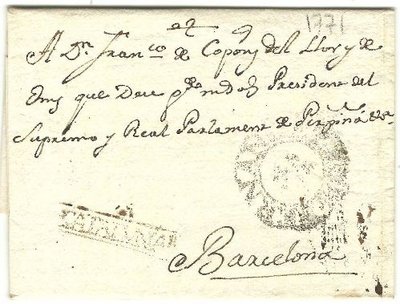 1771
A Dn. Franco. de Copons del Llor y de
que Dios Presidente del
Supremo y Real Parlament de Perpiña &a.
CATALUÑA
Barcelona